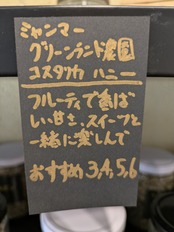 ミャンマー
グリーンランド農園
コスタリカ ハニー
フルーティで香ば
しい甘さ、スイーツと
一緒に楽しんで
おすすめ 3,4,5,6